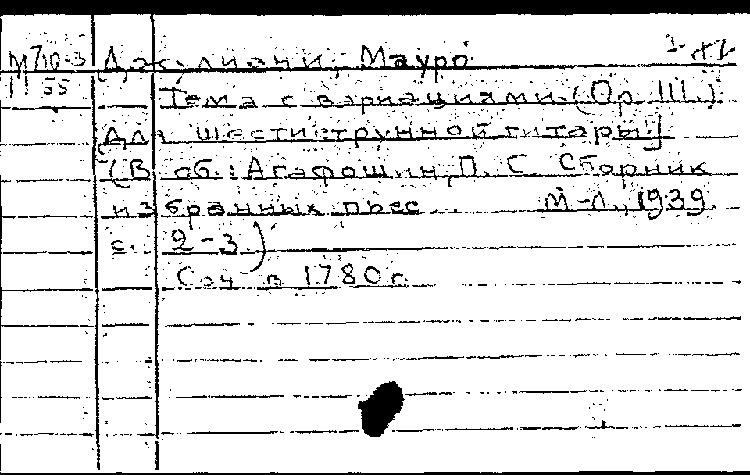 М710-3 Джулиани, Мауро
55 Тема с вариациями. (Op. 111.)
[Для шестиструнной гитары]
(В сб.: Агафошин, П. С. Сборник
избранных пьес ... М-Л., 1939.
с. 2-3)
Соч в 1780 г.